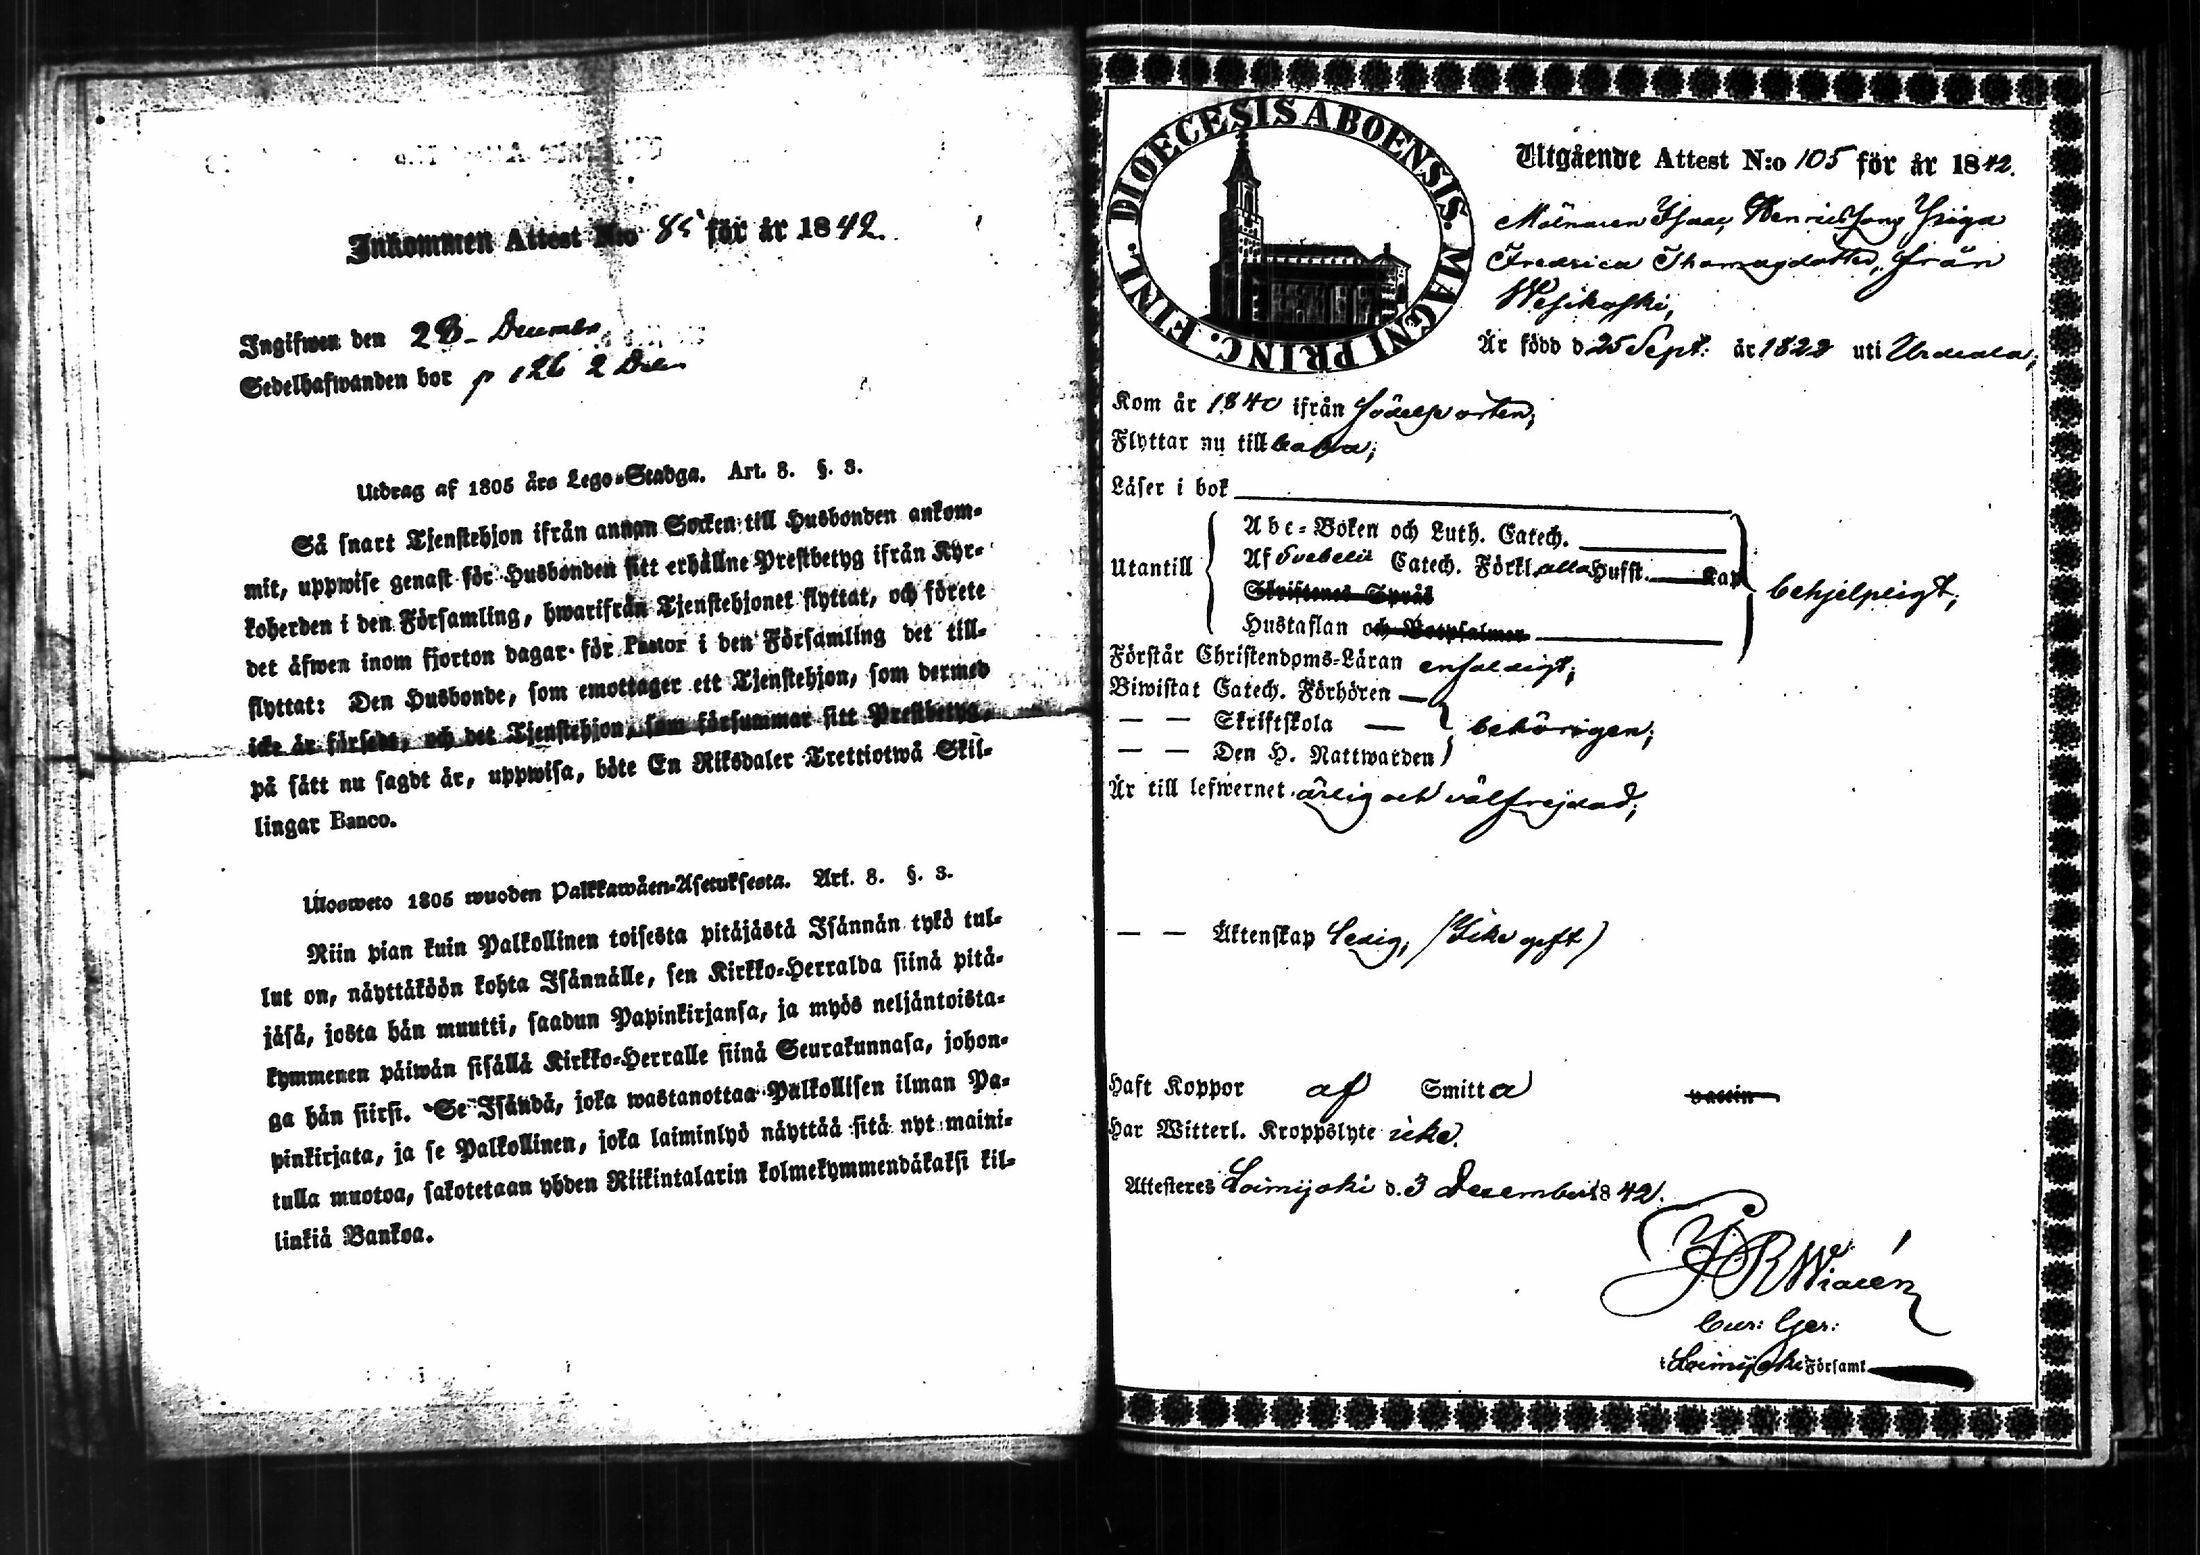 Inkommen Attest N:o 85 för år 1842.
Ingifwen den 28 December
Sedelhafwanden bor p 126 2
Utdrag af 1805 års Lego-Stadga. Art. 8. §. 3.
Så snart Tjenstehjon ifrån annan Socken till Husbonden ankom-
mit, uppwise genast för Husbonden sitt erhållne Prestbetyg ifrån Kyr-
koherden i den Församling, hwarifrån Tjenstehjonet flyttat, och förete
det äfwen inom fjorton dagar för Pastor i den Församling det till-
flyttat: Den Husbonde, som emottager ett Tjenstehjon, som dermed
icke är försedt, och det Tjenstehjon, som försummar sitt Prestbetyg,
på sätt nu sagdt är, uppwisa, böte En Riksdaler Trettiotwå Skil-
lingar Banco.
Ulosweto 1805 wuoden Palkkawäen-Asetuksesta. Art. 8. §. 3.
Niin pian kuin Palkollinen toisesta pitäjästä Isännän tykö tul-
lut on, näyttäköön kohta Isännälle, sen Kirkko-Herralda siinä pitä-
jäsä, josta hän muutti, saadun Papinkirjansa, ja myös neljäntoista-
kymmenen päiwän sisällä Kirkko-Herralle siinä Seurakunnasa, johon-
ga hän siirsi. Se Isändä, joka wastanottaa Palkollisen ilman Pa-
pinkirjata, ja se Palkollinen, joka laiminlyö näyttää sitä nyt maini-
tulla muotoa, sakotetaan yhden Riikintalarin kolmekymmendäkaksi kil-
linkiä Bankoa.
DIOECESIS ABOENSIS. MAGNI PRINC. FINL.
Utgående Attest N:o 105 för år 1842.
Mölnaren Isaac Henricssons Piga
Fredrica Thomasdotter, från
Wesikoski,
Är född d. 25 Sept. år 1822 uti Urdiala;
Kom år 1840 ifrån födelse orten;
Flyttar nu tillbaka;
Läser i bok
Utantill
Abc-Boken och Luth. Catech.
Af Svebelii Catech. Förkl. alla Hufst. Kap
Skriftenes Språk
Hustaflan och Botpsalmer
behjelpligt;
Förstår Christendoms-Läran enfaldigt;
Biwistat Catech. Förhören
— — Skriftskola —
— — Den H. Nattwarden
behörigen;
Är till lefwernet ärlig och välfrejdad;
— — Äktenskap ledig, (Icke gift)
Haft Koppor af Smitta vaccin
Har Witterl. Kroppslyte icke.
Attesteras Loimijoki d. 3 December 1842.
Cur: Ger:
i Loimijoki Församl.